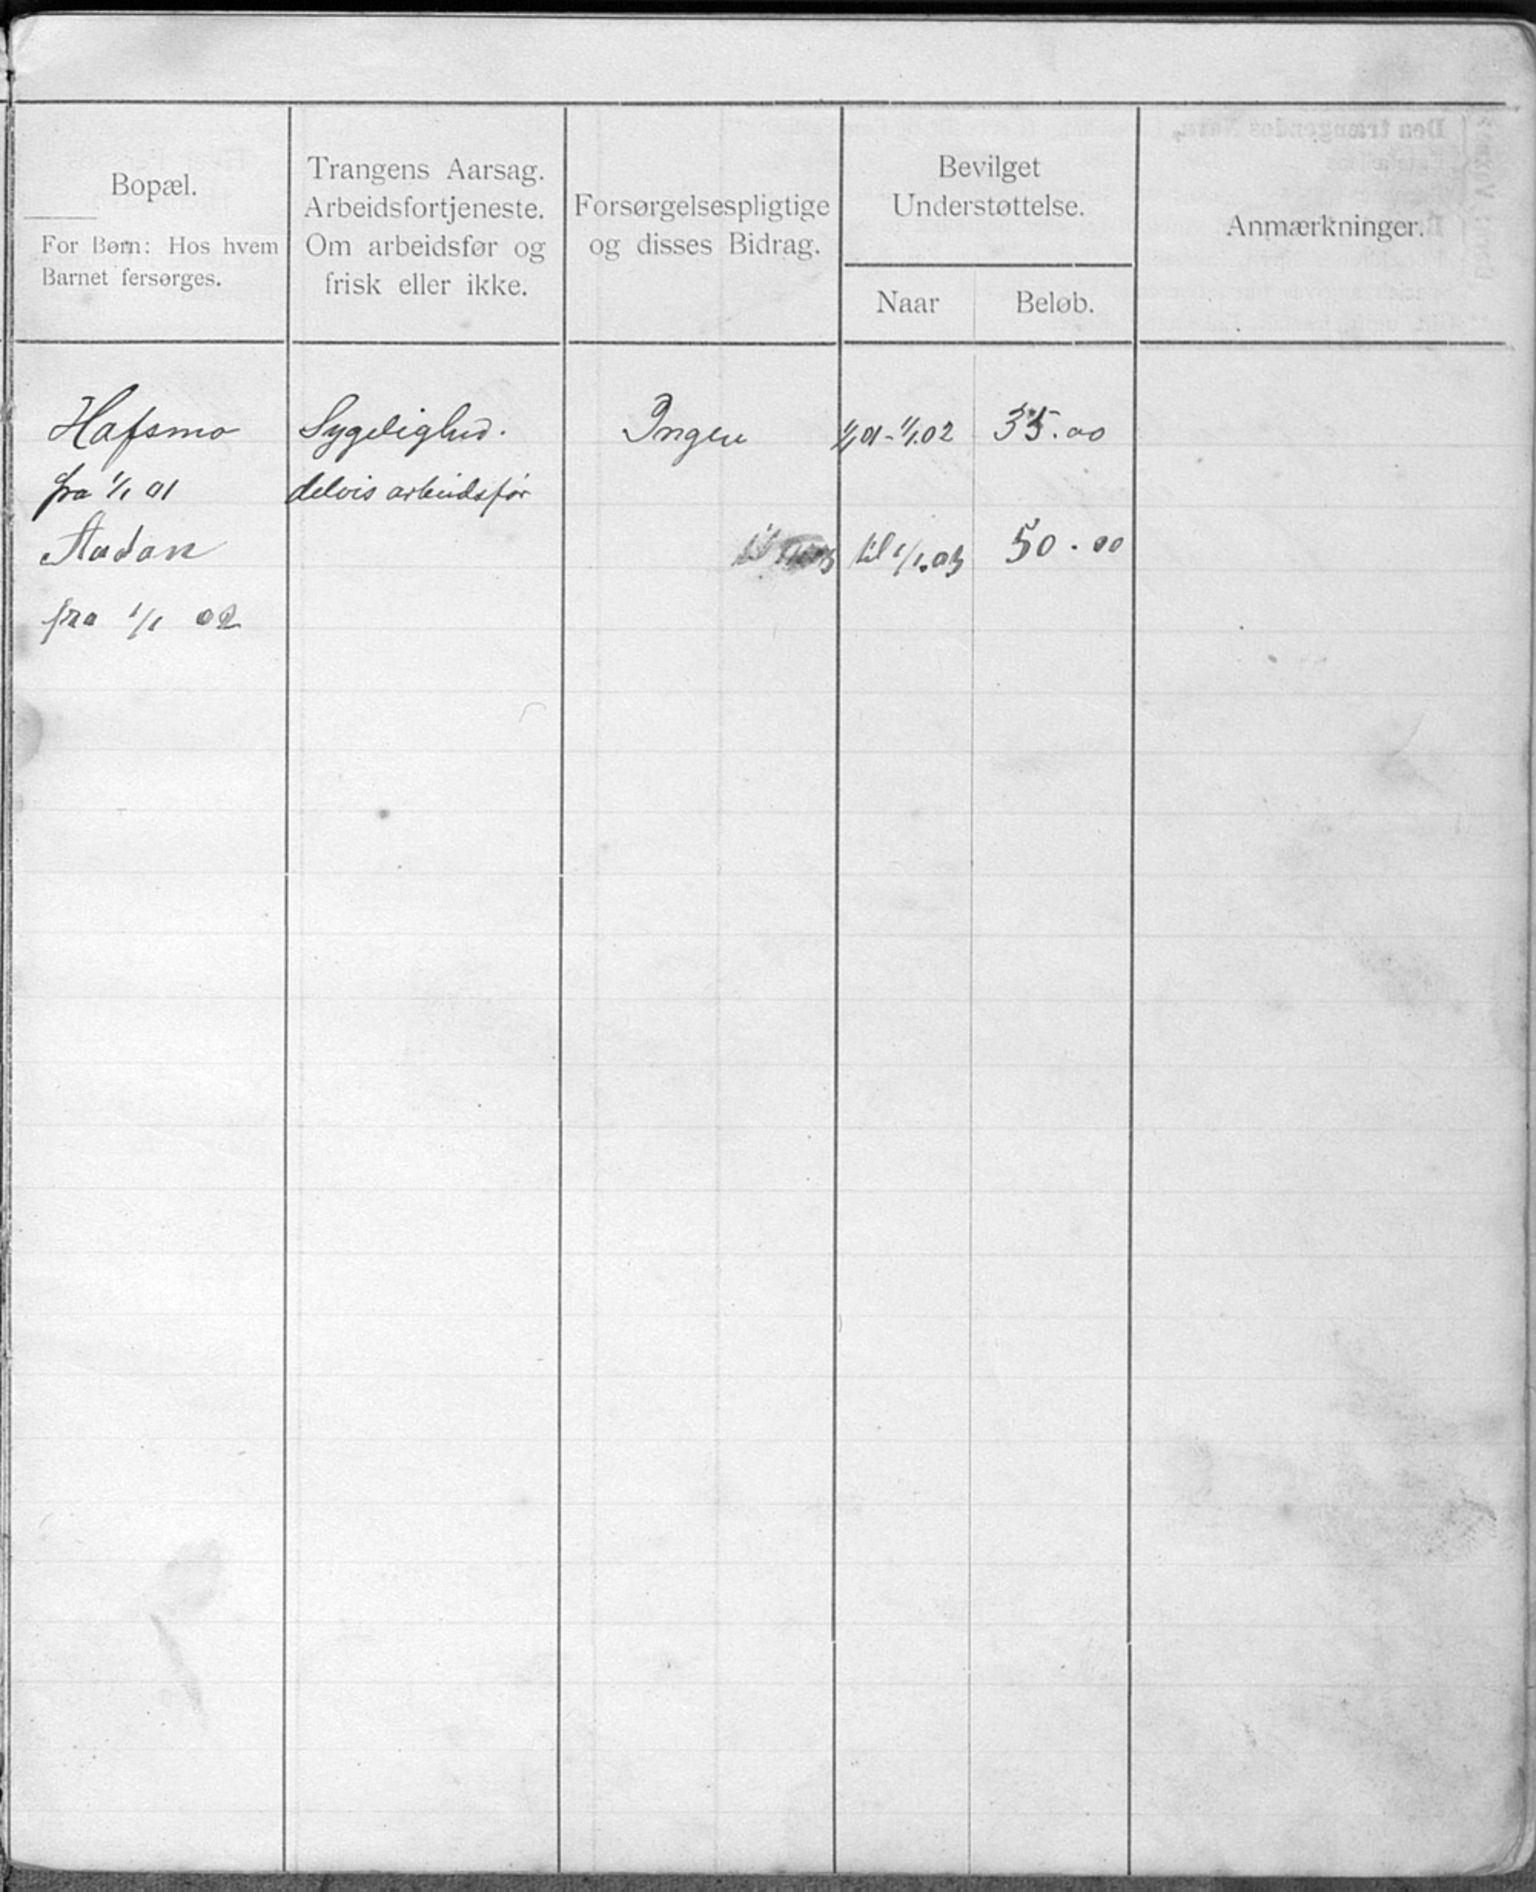 Bopæl.
For Børn: Hos hvem
Barnet fersørges.
Trangens Aarsag.
Arbeidsfortjeneste.
Om arbeidsfør og
frisk eller ikke.
Forsørgelsespligtige
og disses Bidrag.
Bevilget
Understøttelse.
Naar
Beløb.
Anmærkninger.
Hafsmo Sygelighed. Ingen 1/1 01 - 1/1.02 35.00
fra 1/1 01 delvis arbeidsfør
til til 1/1.03 50.00
fra 1/1 02